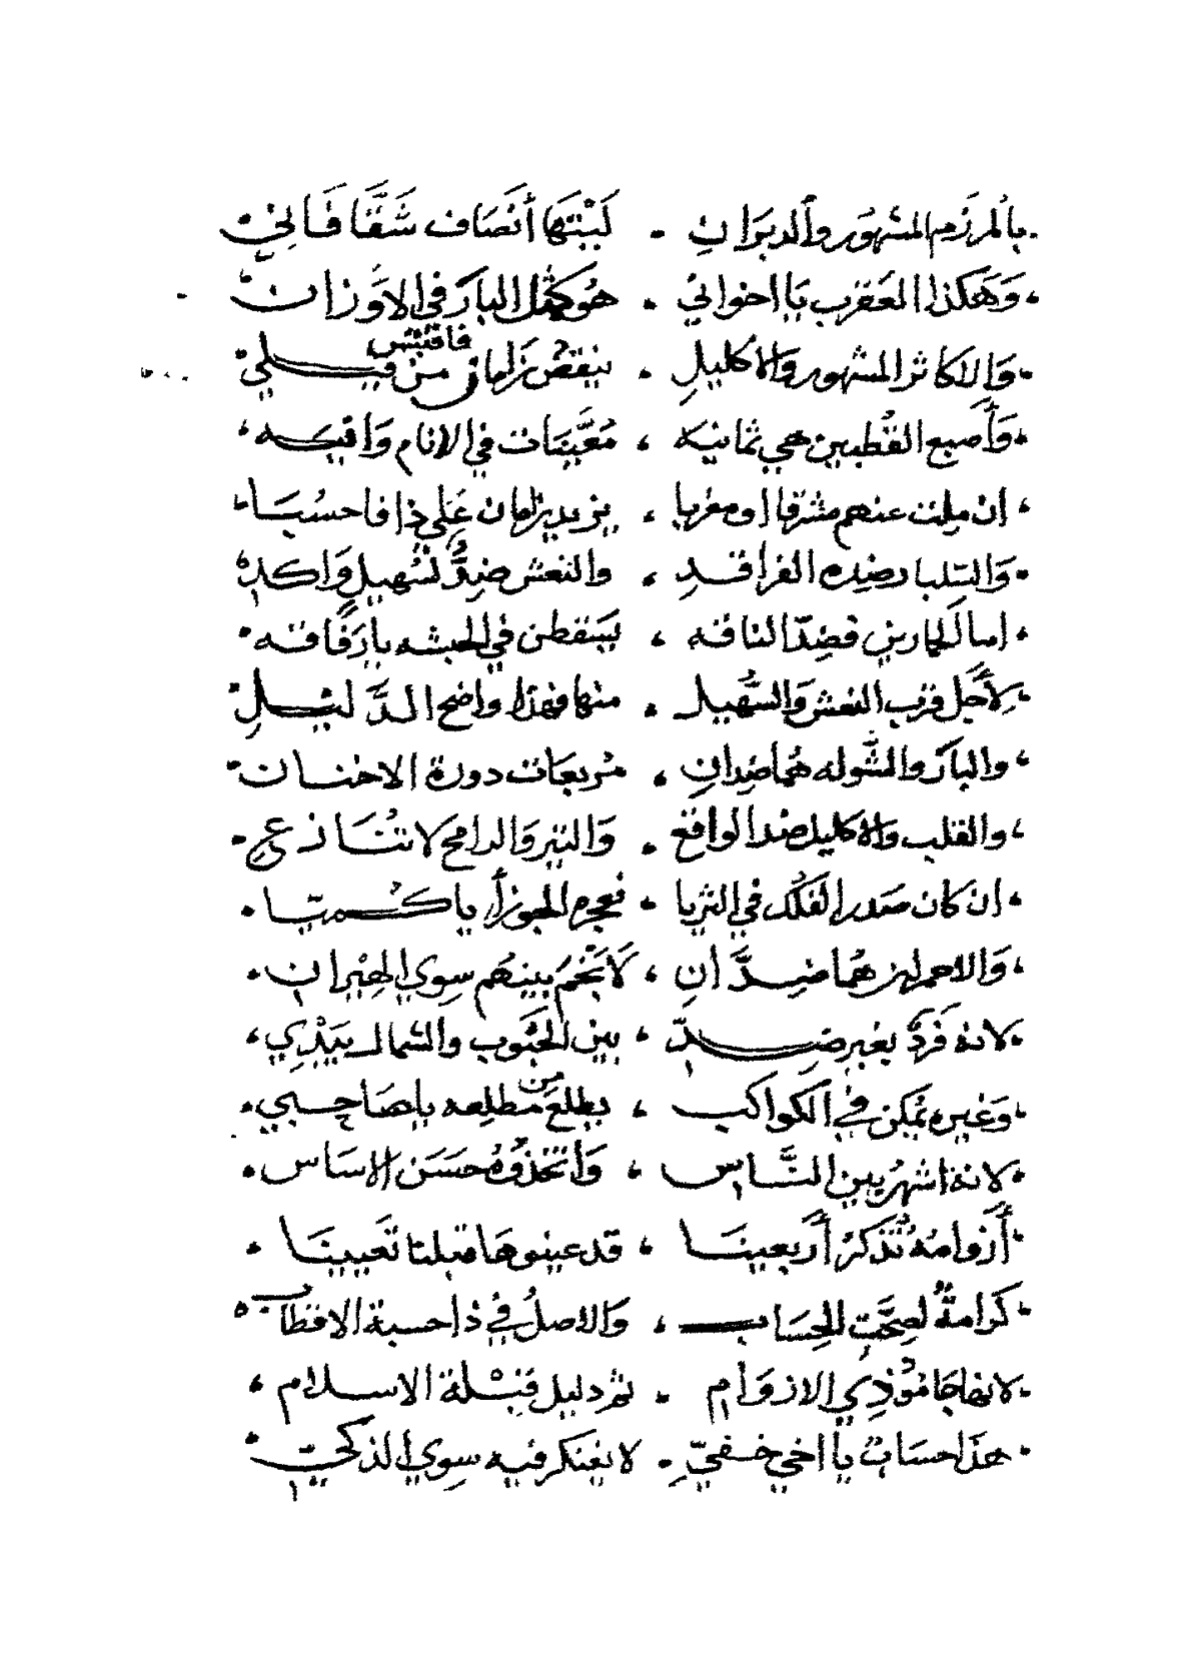 بالمرزم المشهور والدبران . لبيتها أنصاف شقا فاني
وهكذا العقرب يا اخواني . هو كمثل البار في الاوزان
والاكاثر المشهور والاكليل . ينقص زامان فاقتبس من قيلي
وأصبع القطبين هي ثمانيه ، معينات في الانام وافيه
ان ملت عنهم مشرقا او مغربا ، يزيد زامان علي ذا فاحسبا
والسلبار ضده الفراقد ، والنعش ضد لسهيل واكد
اما الحمارين فضد الناقه ، يسقطن في الحبشه يا رفاقه
لأجل قرب النعش والسهيل . منها فهذا واضح الدليل
والبار والشوله هما ضدان ، مربعات دورة الاخنان
والقلب والاكليل ضد الواقع . والتير والرامح لا تنازع
ان كان صدر الفلك في الثريا . فعجزه الجوزا يا كميا
والاحمران هما ضدان ، لا نجم بينهم سوي الحيران
لانه فرد بغير ضد ، بين الجنوب والشمال يبدي
وغيره يمكن في الكواكب ، يطلع من مطلعه يا صاحبي
لانه اشهر بين الناس ، واتخذوه حسن الاساس
أزوامه تذكر أربعينا ، قد عينوها قبلنا تعيينا
كرامة لصحت الحساب ، والاصل في ذا حسبة الاقطاب
لانها جا نوذي الازوام . ثم دليل قبلة الاسلام
هذا حساب يا اخي خفي . لا يفتكر فيه سوي الذكي